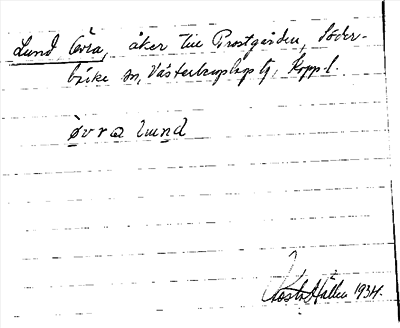 Lund Övra, åker till Prostgården, Söder-
bärke sn, Västerbergslags tg, Kopp.l.
övra lund
Gösta Hållen 1934.